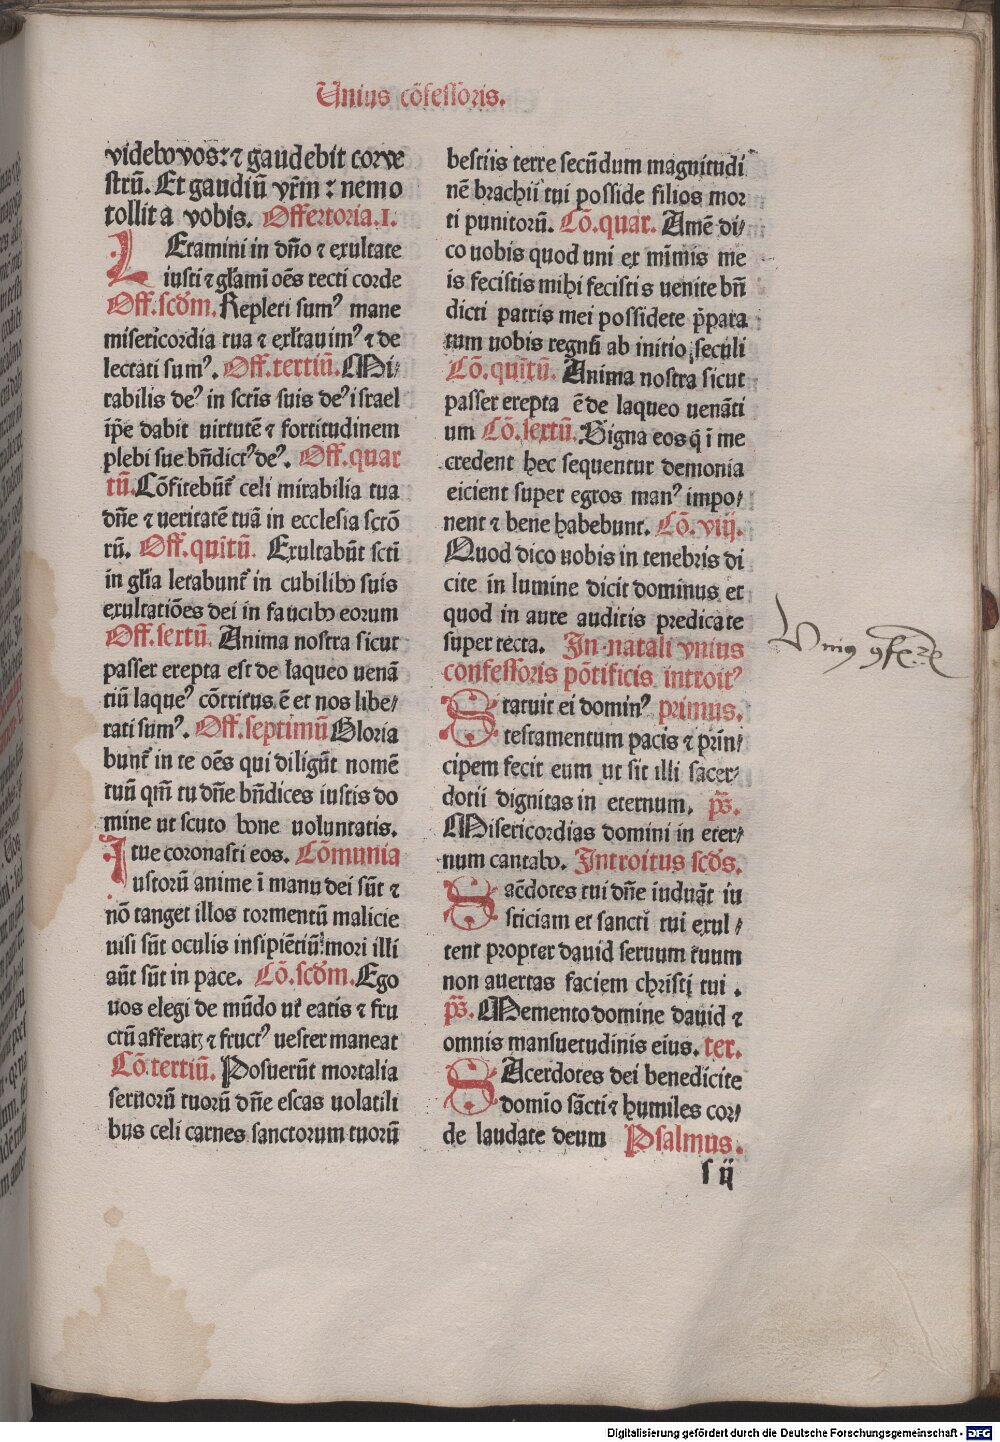 Unius cōfessoris.
videbo vos: ⁊ gaudebit cor ve
strū. Et gaudiū vr̄m : nemo
tollit a vobis. Offertoria.I.
LEtamini in dn̄o ⁊ exultate
iusti ⁊ gl̄amī oēs recti corde
Off.scd̄m. Repleti sumꝰ mane
misericordia tua ⁊ exl̄tauimꝰ ⁊ de
lectati sumꝰ. Off.tertiū. Mi⸗
rabilis deꝰ in sctīs suis deꝰ israel
ip̄e dabit uirtutē ⁊ fortitudinem
plebi sue bn̄dictꝰ deꝰ. Off.quar
tū. Cōfitebūt᷑ celi mirabilia tua
dn̄e ⁊ ueritatē tuā in ecclesia sctō
rū. Off.quītū. Exultabūt sctī
in gl̄ia letabunt᷑ in cubilibꝰ suis
exultatiōes dei in faucibꝰ eorum
Off.sextū. Anima nostra sicut
passer erepta est de laqueo uenā
tiū laqueꝰ cōtritus ē et nos libe⸗
rati sumꝰ. Off.septimū Gloria
bunt᷑ in te oēs qui diligūt nomē
tuū qm̄ tu dn̄e bn̄dices iustis do
mine ut scuto bone uoluntatis.
tue coronasti eos. Cōmunia
Iustorū anime ī manu dei sūt ⁊
nō tanget illos tormentū malicie
uisi sūt oculis insipiētiū: mori illi
aūt sūt in pace. Cō.scd̄m. Ego
uos elegi de mūdo ut᷑ eatis ⁊ fru
ctū afferatꝫ ⁊ fructꝰ uester maneat
Cō.tertiū. Posuerūt mortalia
seruorū tuorū dn̄e escas uolatili
bus celi carnes sanctorum tuorū
bestiis terre secūdum magnitudi
nē brachii tui posside filios mor
ti punitorū. Cō.quar. Amē di⸗
co uobis quod uni ex mīmis me
is fecistis mihi fecistis uenite bn̄
dicti patris mei possidete p̄para
tum uobis regnū ab initio seculi
Cō.quītū. Anima nostra sicut
passer erepta ē de laqueo uenāti
um Cō.sextū. Signa eos q̄ ī me
credent hec sequentur demonia
eicient super egros manꝰ impo⸗
nent ⁊ bene habebunt. Cō.viij.
Quod dico uobis in tenebris di
cite in lumine dicit dominus et
quod in aure auditis predicate
super tecta. In natali vnius
confessoris pōtificis introitꝰ
Statuit ei dominꝰ primus.
testamentum pacis ⁊ prin⸗
cipem fecit eum ut sit illi sacer⸗
dotii dignitas in eternum. ps̄.
Misericordias domini in eter⸗
num cantabo. Introitus scd̄s.
Sac̄dotes tui dn̄e iduāt iu
sticiam et sancti tui exul⸗
tent propter dauid seruum tuum
non auertas faciem christi tui .
ps̄. Memento domine dauid ⁊
omnis mansuetudinis eius. ter.
SAcerdotes dei benedicite
domīo sācti ⁊ humiles cor⸗
de laudate deum Psalmus.
s ij
Vniꝰ ꝯfe
Digitalisierung gefördert durch die Deutsche Forschungsgemeinschaft - DFG